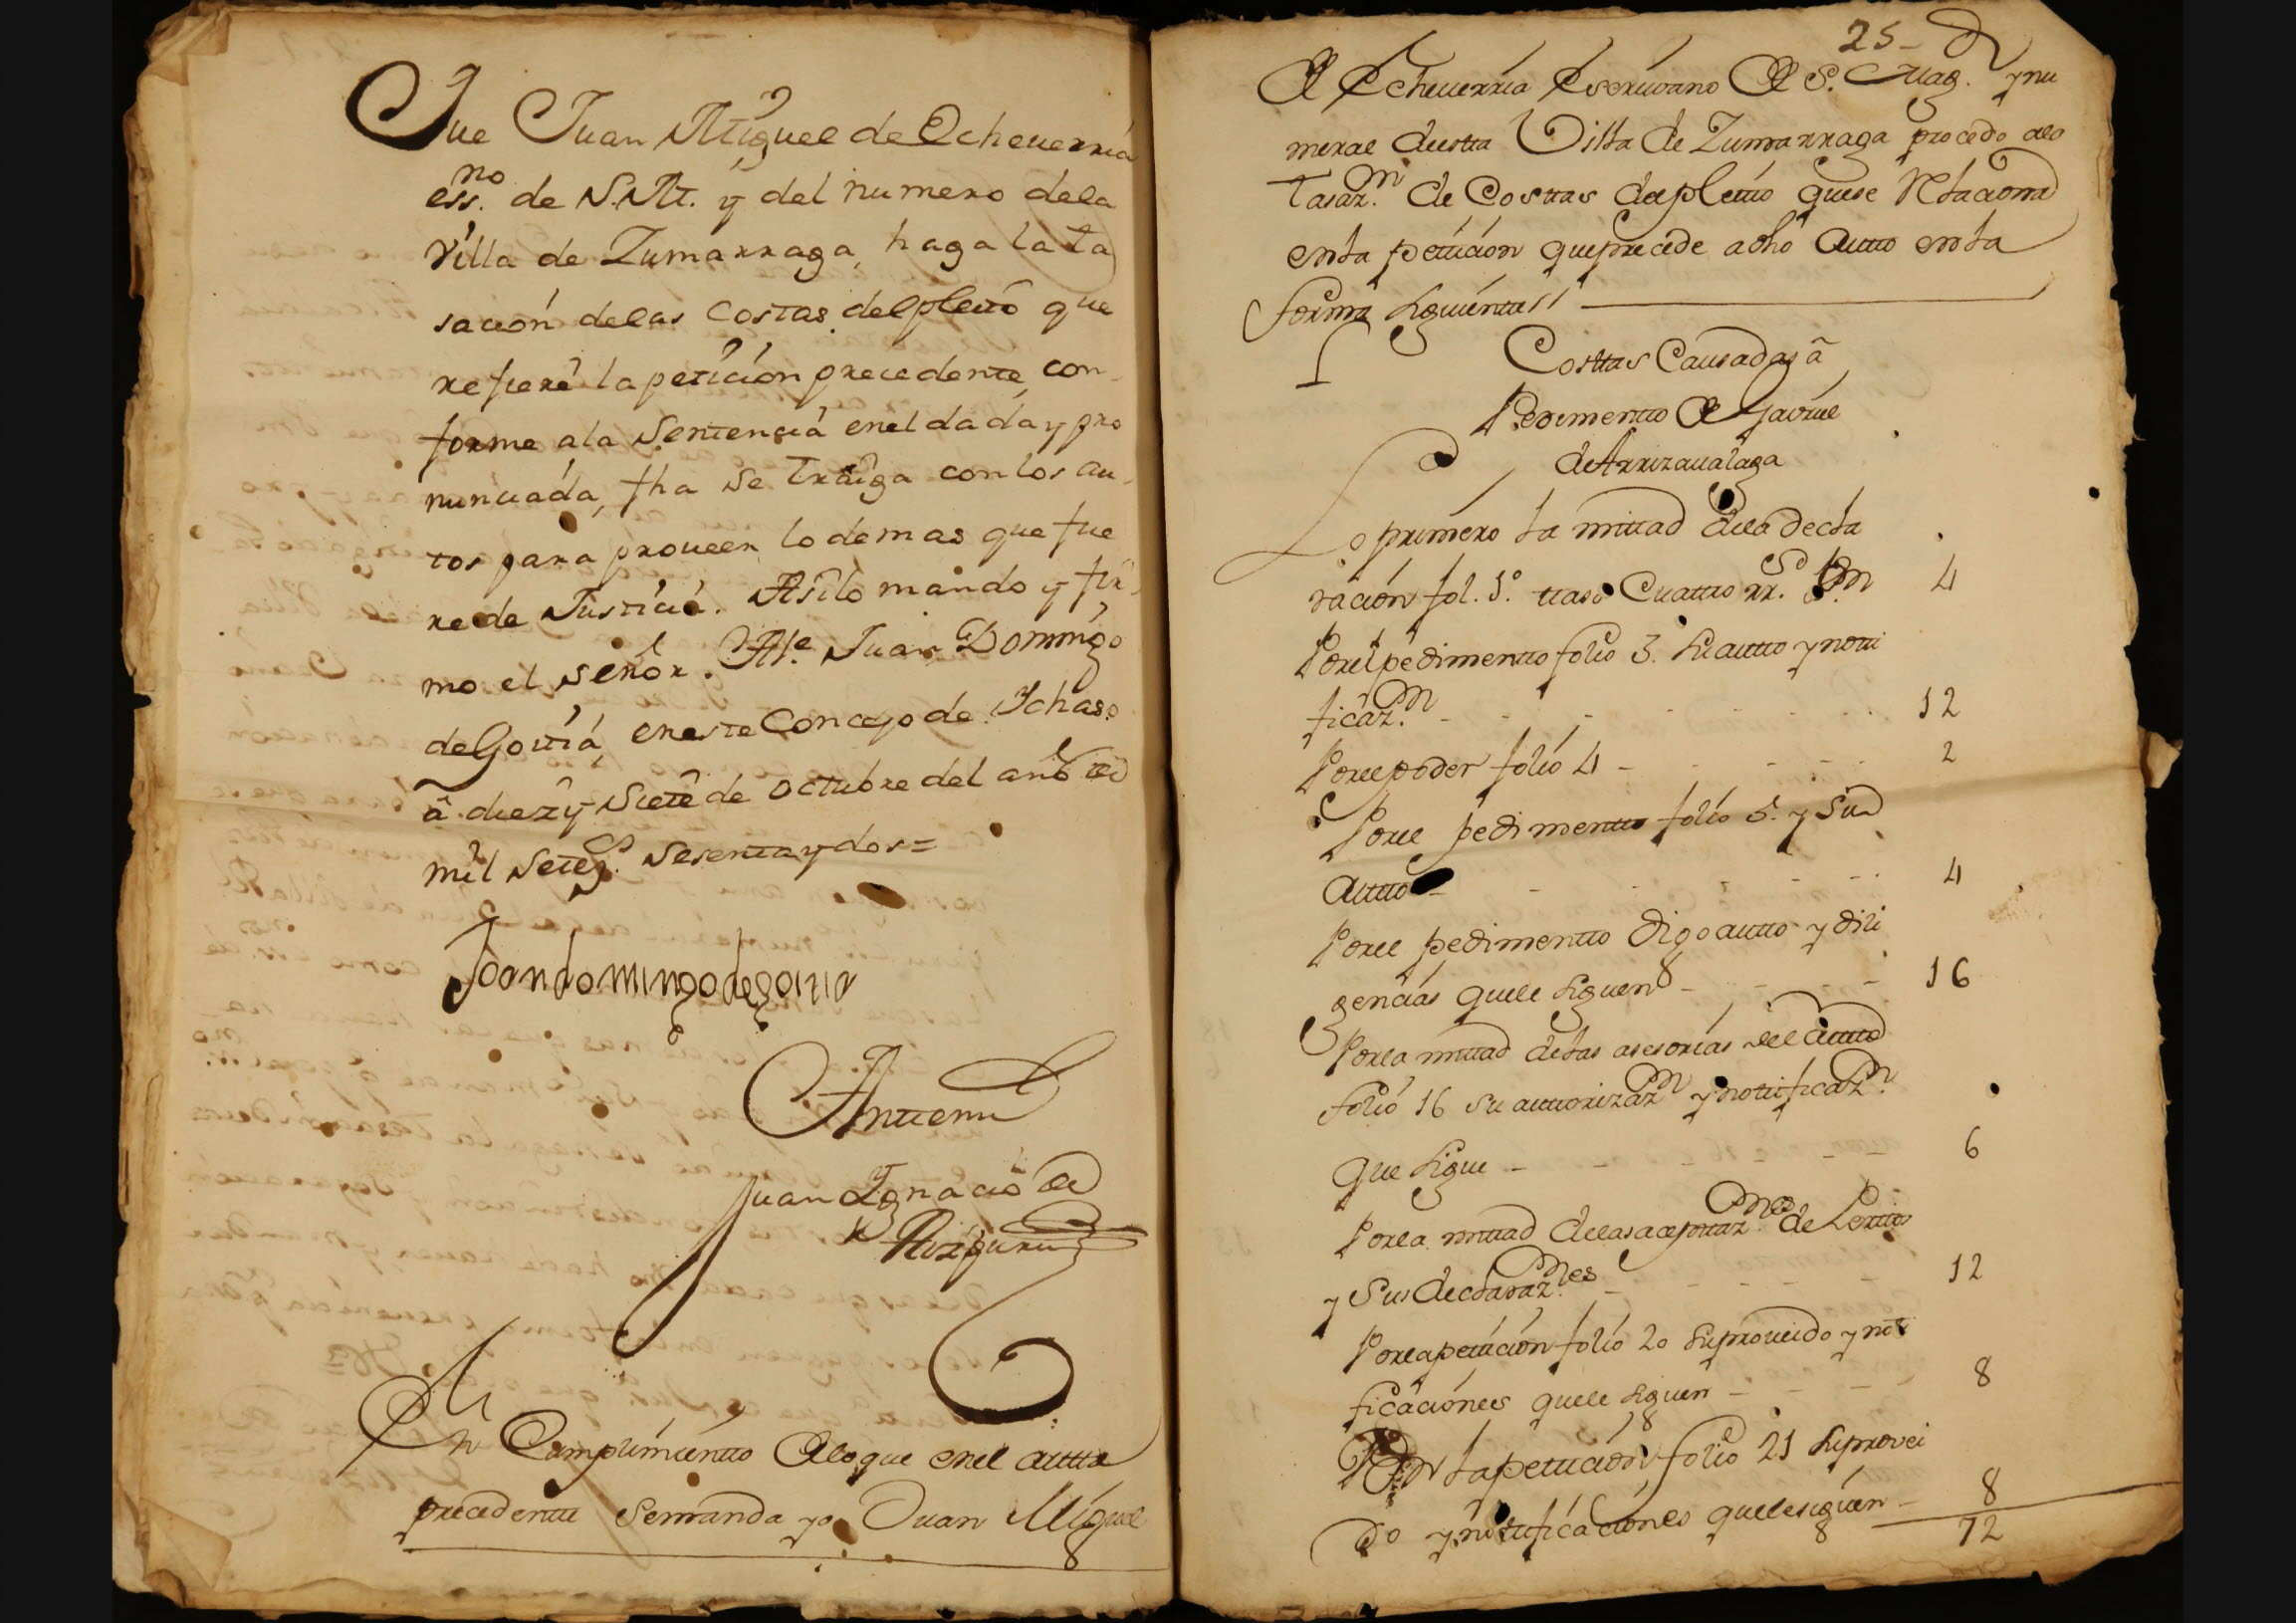 Que Juan Miguel de Echeuerria
ess.no de S.M. y del numero dela
Villa de Zumarraga, haga la ta
sacion delas Costas del pleito que
refiere la peticion precedente, con-
forme ala Sentencia enel dada y pro
nunciada, fha se traiga con los au-
tos para proueer lo demas que fue
re de Justicia. Asilo mando y fir-
mo el señor Al.e Juan Domingo
de Goitia, eneste Concejo de Ychaso
â diez y siete de octubre del año de
mil setez.s sesenta y dos=
Joan domingo de goitia
Antemi
Juan Ygnacio de
Aizpuru
En Cumplimientto delo que enel autto
precedentte semanda yo Juan Miguel
25-
de Echeuerria Escriuano de S. Mag. y nu
meral de estta Villa de Zumarraga procedo ala
tasaz.n de Costtas del pleitto que se relaciona
enla petticion que precede a dho autto enla
forma siguientte //
Costtas Causadas â
Pedimentto de Gavriel
de Arrizaualaga
Lo primero la mittad dela decla
racion fol. 1.º tiaso Cuattro rr.s Vn
4
Porel pedimentto folio 3. su autto y noti
ficaz.n
12
Porel poder folio 4
2
Porel pedimentto folio 5. y su
autto
4
Porel pedimentto digo autto y dili
gencias quele siguen
16
Porla mittad delas asesorias del autto
folio 16 su auttorizaz.n y nottificaz.n
que sigue
6
Porla mittad delas aceptaz.nes de Perittos
y sus declaraz.nes
12
Porla petticion folio 20 su proueido y noti
ficaciones quele siguen
8
Por la petticion folio 21 su provei
do y nottificaciones quele siguen
8
72